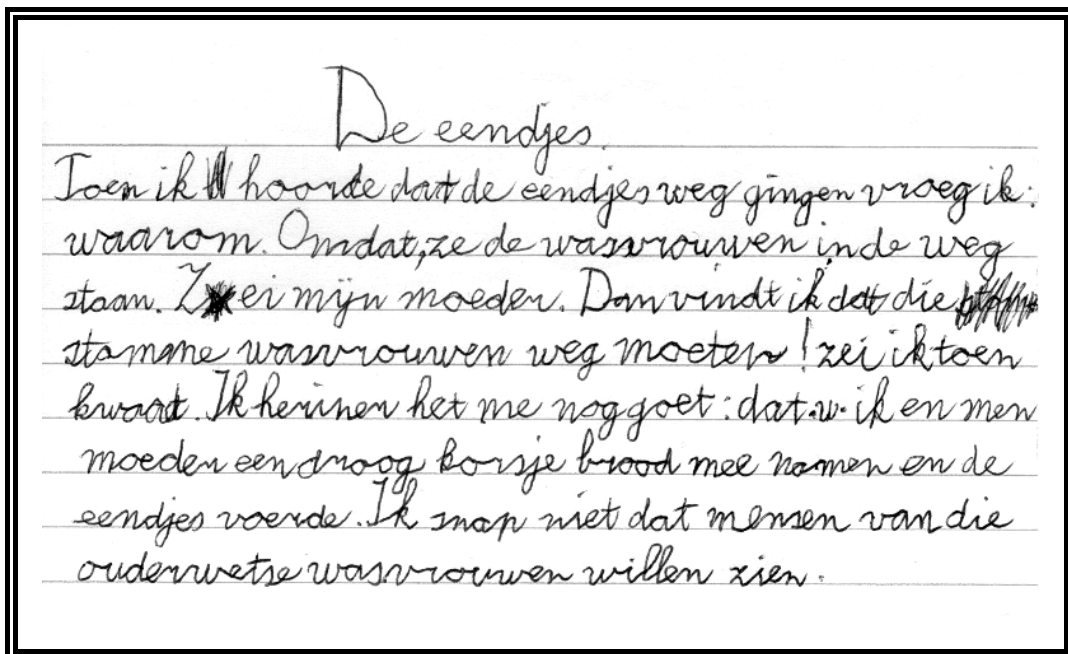 De eendjes.
Toen ik hoorde dat de eendjes weg gingen vroeg ik:
waarom. Omdat, ze de wasvrouwen in de weg
staan. Zei mijn moeder. Dan vindt ik dat die
stomme wasvrouwen weg moeten! zei ik toen
kwaad. Ik herinner het me nog goet: dat w. ik en men
moeder een droog korsje brood mee namen en de
eendjes voerde. Ik snap niet dat mensen van die
ouderwetse wasvrouwen willen zien.